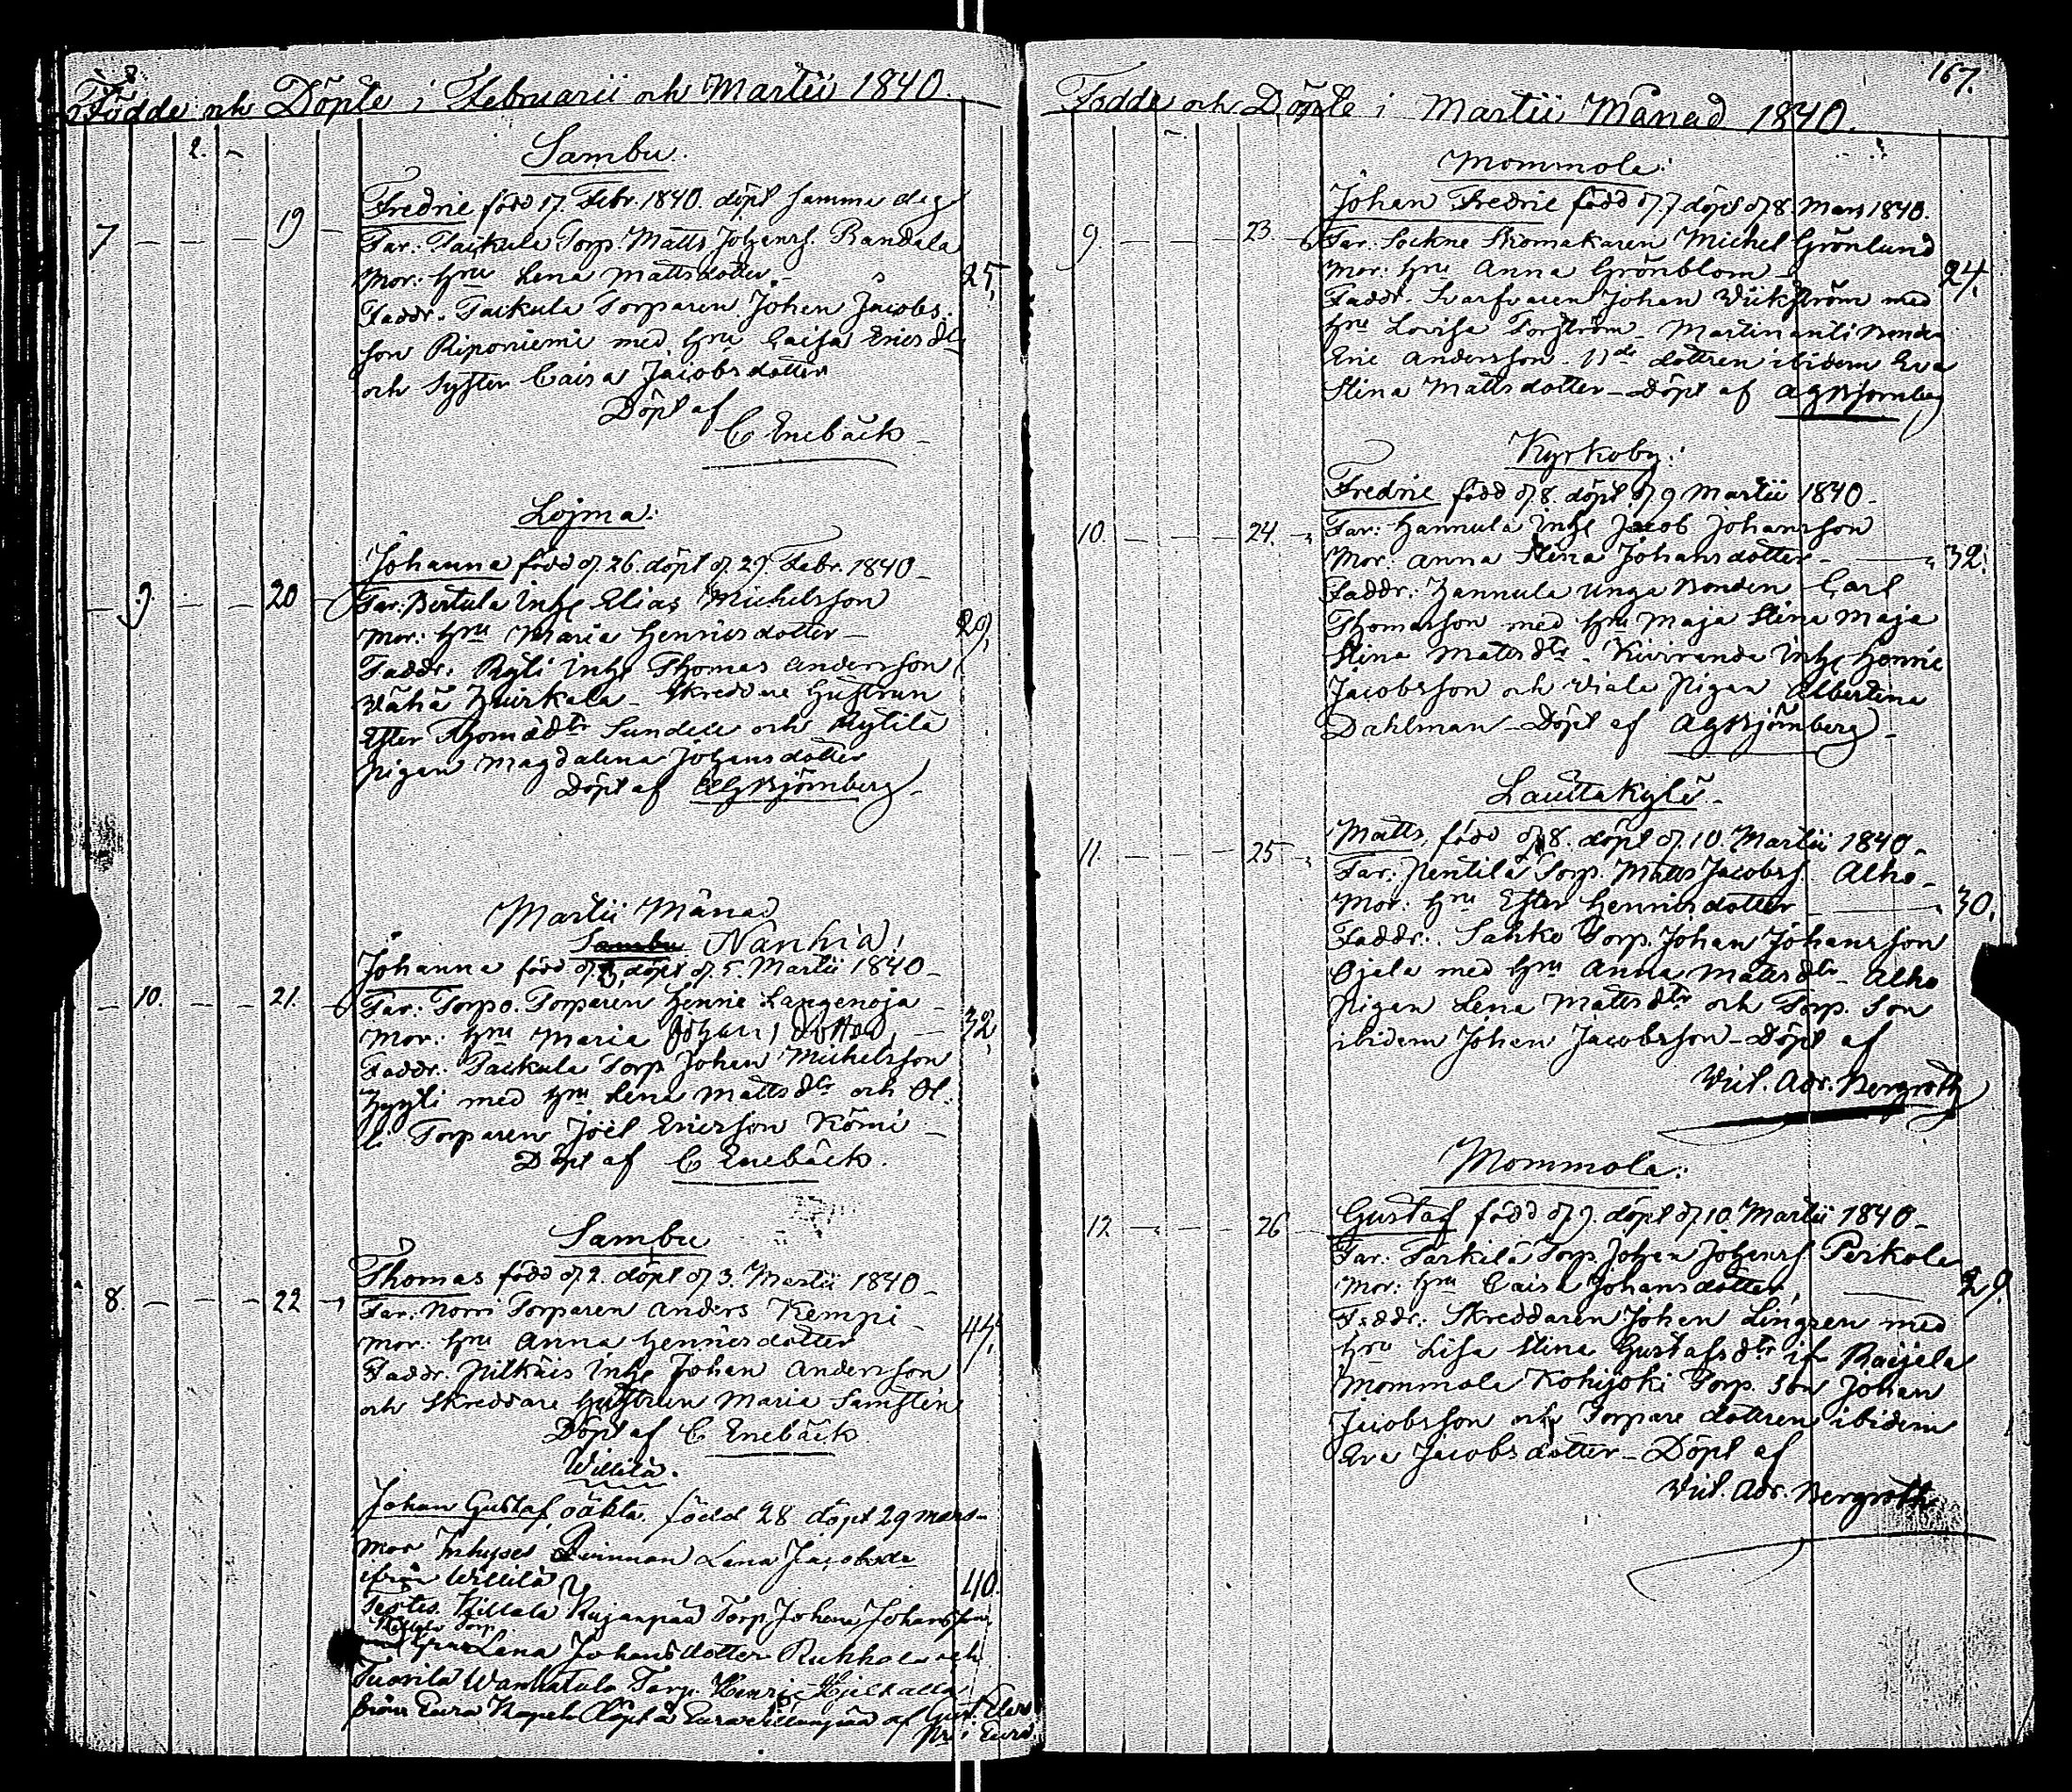 Födde och Döpte i Februarii och Martii 1840.
2.
Sambu.
Fredric född 17. Febr. 1840. döpt samma dag
7 19 Far: Torp. Matts Johanss. Randala
Mor: Hru Lena Mattsdotter 25,
Faddr. Torparen Johan Jacobs
son Riponiemi med Hru Caisa Ericsdr
och Syster Caisa Jacobsdotter
Döpt af
C Enebäck
Lojma:
Johanna född d. 26. döpt d. 27 Febr. 1840
9. 20 Far: Bertula Inhs Elias Michelsson
Mor: Hru Maria Henricsdotter 29,
Faddr. Inhs Thomas Andersson
Wähä Skreddare Hustrun
Ester och
Pigan Magdalena Johansdotter
Döpt af AG Björnberg
Martii Månad
Sambu Nanhia!
Johanna född d. döpt d. 5. Martii 1840
10. 21. Far: Torpo. Torparen Henric Langenoja
Mor: Hru Maria Johansdotter 32,
Faddr. Torp. Johan Michelsson
Hyyti med Hru Lena Mattsdr och
Torparen Joel Ericsson Kömi
Döpt af C Enebäck.
Sambu
Thomas född d. 2. döpt d. 3. Martii 1840
8. 22 Far: Norri Torparen Anders Kempi
Mor: Hru Anna Henricsdotter 44,
Faddr. Inhs Johan Andersson
och Skreddare Hustrun Maria Samsten
Döpt af C Enebäck
Willilä.
Johan Gustaf, oäkta. född 28 döpt 29 mars
Mor Inhyses Qvinnan Lena Jacobsdr
ifrån Willilä 40.
Testes. Torp. Johan Johansson
Torp
Lena Johansdotter och
Tuorila Torp. Henric
från Eura Kapell Döpt af Gust.
i Eura
167.
Födde och Döpte i Martii Månad 1840.
Mommola:
Johan Fredric född d. 7 döpt d. 8 Mars 1840.
9. 23. Far. Sockne Skomakaren Michel Grönlund
Mor: Hru Anna Grönblom 24,
Faddr. Johan Wikström med
Hru Lovisa Forström Martinanti Bonden
Eric Andersson dottren ibidem Eva
Stina Mattsdotter Döpt af AG Björnberg
Kyrkoby:
Fredric född d. 8. döpt d. 9 Martii 1840
10. 24. Far: Hannula Inhs Jacob Johansson
Mor. Anna Stina Johansdotter 32.
Faddr: Hannula unga Bonden Carl
Thomasson med Hru Maja Stina Maja
Stina Matsdr Kiviranda Inhs Henric
Jacobsson och Viala Pigan Albertina
Dahlman Döpt af AG Björnberg
Lauttakylä
Matts, född d. 8. döpt d. 10. Martii 1840
11. 25 Far: Pentilä Torp. Matts Jacobss. Alho
Mor: Hru Ester Henricsdotter 30.
Faddr. Sahko Torp. Johan Johansson
Ojala med Hru Anna Matsdr Alho
Pigan Lena Mattsdr och Torp. Son
ibidem Johan Jacobsson Döpt af
Vict. Adr. Bergroth
Mommola:
Gustaf född d. 9. döpt d. 10 Martii 1840
12 26 Far: Torp. Johan Johanss. Perkola
Mor: Hru Caisa Johansdotter, 29.
Faddr: Skreddaren Johan Lingren med
Hru Lisa Stina Gustafsdr ifr Raijala
Mommola Kohijoki Torp. Son Johan
Jacobsson och Torpare dottren ibidem
Eva Jacobsdotter Döpt af
Vict. Adr. Bergroth